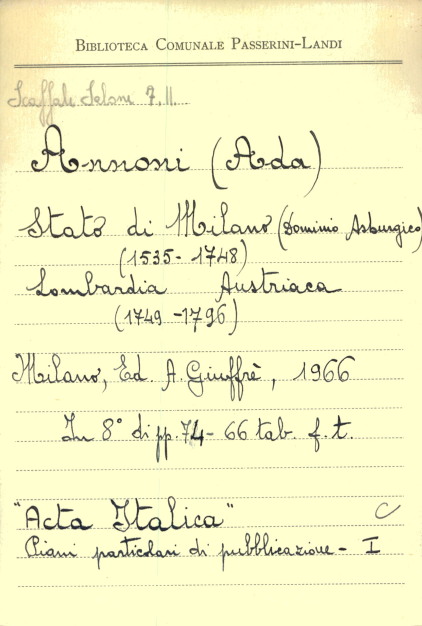 BIBLIOTECA COMUNALE PASSERINI-LANDI
Scaffale Salone 7.11.
Annoni (Ada)
Stato di Milano (Dominio Asburgico)
(1535- 1748)
Lombardia Austriaca
(1749 -1796)
Milano, Ed. A. Giuffrè, 1966
In 8° di pp. 74- 66 tab. f. t.
"Acta Italica" C
Piani particolari di pubblicazione - I